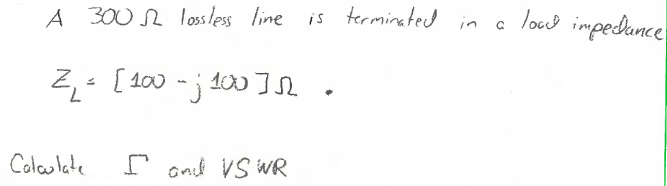 A 300 Ω lossless line is terminated in a load impedance
Z_L = [100 - j 100] Ω .
Calculate Γ and VSWR